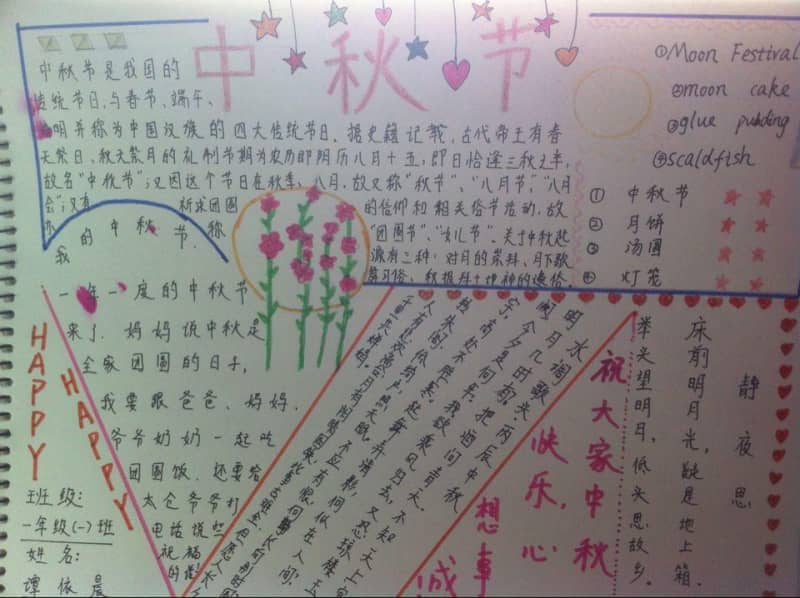 中秋节
中秋节是我国的
传统节日，与春节、端午、
明并称为中国汉族的四大传统节日。据史籍记载，古代帝王有春
天祭日、秋天祭月的礼制节期为农历即阴历八月十五，即日恰逢三秋之半，
故名"中秋节"；又因这个节日在秋季、八月，故又称"秋节"、"八月节"、"八月
会"；又有 祈求团圆 的信仰和相关俗节活动，故
称 "团圆节"、"女儿节"。关于中秋起
源有三种：对月的崇拜、月下歌
①Moon Festival
②moon cake
③glue pudding
④scaldfish
① 中秋节
② 月饼
③ 汤圆
④ 灯笼
我的中秋节
一年一度的中秋节
来了，妈妈说中秋是
全家团圆的日子，
我要跟爸爸、妈妈、
爷爷奶奶一起吃
团圆饭，还要给
太仓爷爷打
电话说些
祝福
的话
HAPPY
HAPPY
班级：
一年级（一）班
姓名：
谭依晨
水调歌头
明月几时有，把酒问青天。不知天上宫
今夕是何年。我欲乘风归去，又恐琼楼玉
宇，高处不胜寒。起舞弄清影，何似在人间！
祝大家中秋
快乐，心
想事
成
静夜思
床前明月光，疑是地上箱。
举头望明月，低头思故乡。